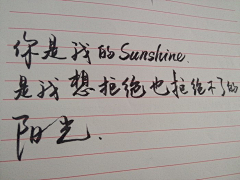 你是我的Sunshine.
是我想拒绝也拒绝不了的
阳光.